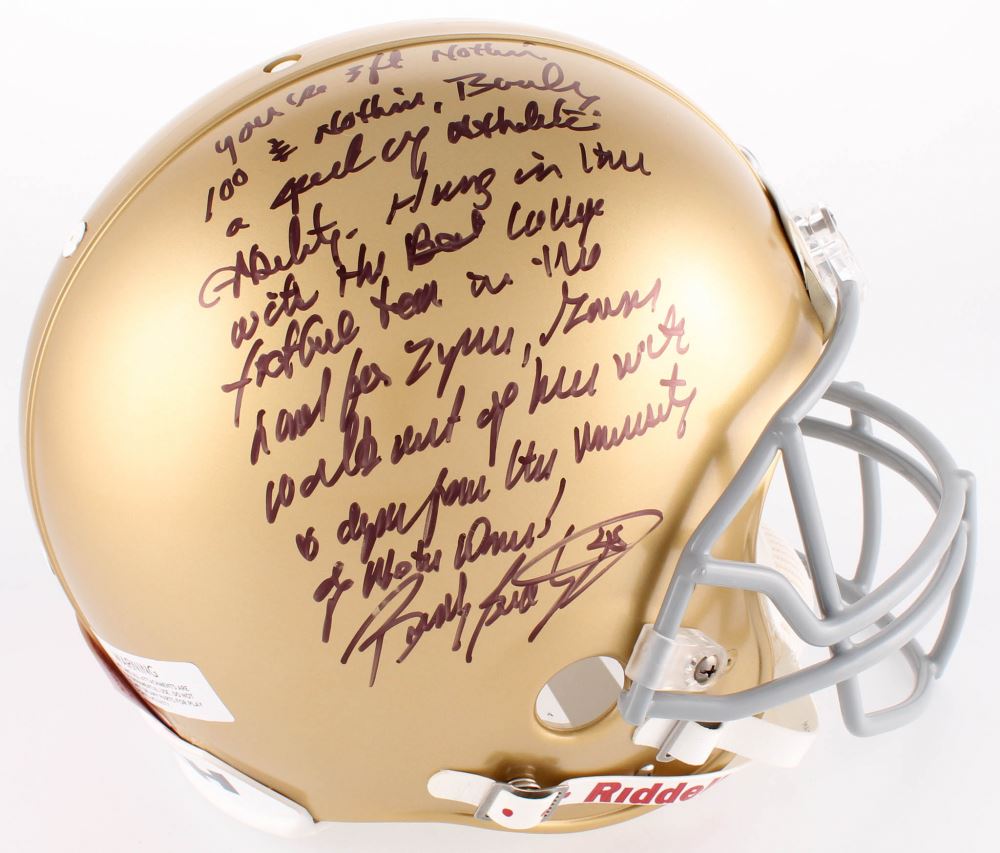 you're 5ft Nothin
100 & Nothin, Barely
a speck of Athletic
Ability. Hung in there
with the Best College
football team in the
land for 2 years,
would walk out of here with
a degree from the University
of Notre Dame!
Rudy Ruettiger 45
WARNING
Ridde